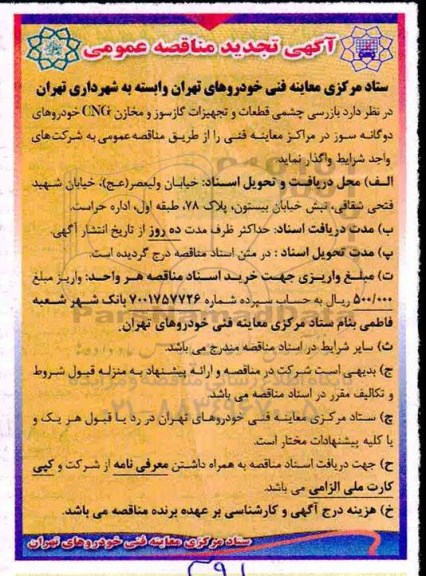 آگهی تجدید مناقصه عمومی
ستاد مرکزی معاینه فنی خودروهای تهران وابسته به شهرداری تهران
در نظر دارد بازرسی چشمی قطعات و تجهیزات گازسوز و مخازن CNG خودروهای
دوگانه سوز در مراکز معاینه فنی را از طریق مناقصه عمومی به شرکت‌های
واجد شرایط واگذار نماید.
الف) محل دریافت و تحویل اسناد: خیابان ولیعصر(عج)، خیابان شهید
فتحی شقاقی، نبش خیابان بیستون، پلاک ۷۸، طبقه اول، اداره حراست.
ب) مدت دریافت اسناد: حداکثر ظرف مدت ده روز از تاریخ انتشار آگهی.
پ) مدت تحویل اسناد : در متن اسناد مناقصه درج گردیده است.
ت) مبلغ واریزی جهت خرید اسناد مناقصه هر واحد: واریز مبلغ
۵۰۰/۰۰۰ ریال به حساب سپرده شماره ۷۰۰۱۷۵۷۷۲۶ بانک شهر شعبه
فاطمی بنام ستاد مرکزی معاینه فنی خودروهای تهران.
ث) سایر شرایط در اسناد مناقصه مندرج می باشد.
ج) بدیهی است شرکت در مناقصه و ارائه پیشنهاد به منزله قبول شروط
و تکالیف مقرر در اسناد مناقصه می باشد.
چ) ستاد مرکزی معاینه فنی خودروهای تهران در رد یا قبول هر یک و
یا کلیه پیشنهادات مختار است.
ح) جهت دریافت اسناد مناقصه به همراه داشتن معرفی نامه از شرکت و کپی
کارت ملی الزامی می باشد.
خ) هزینه درج آگهی و کارشناسی بر عهده برنده مناقصه می باشد.
ستاد مرکزی معاینه فنی خودروهای تهران
ParsNamadData